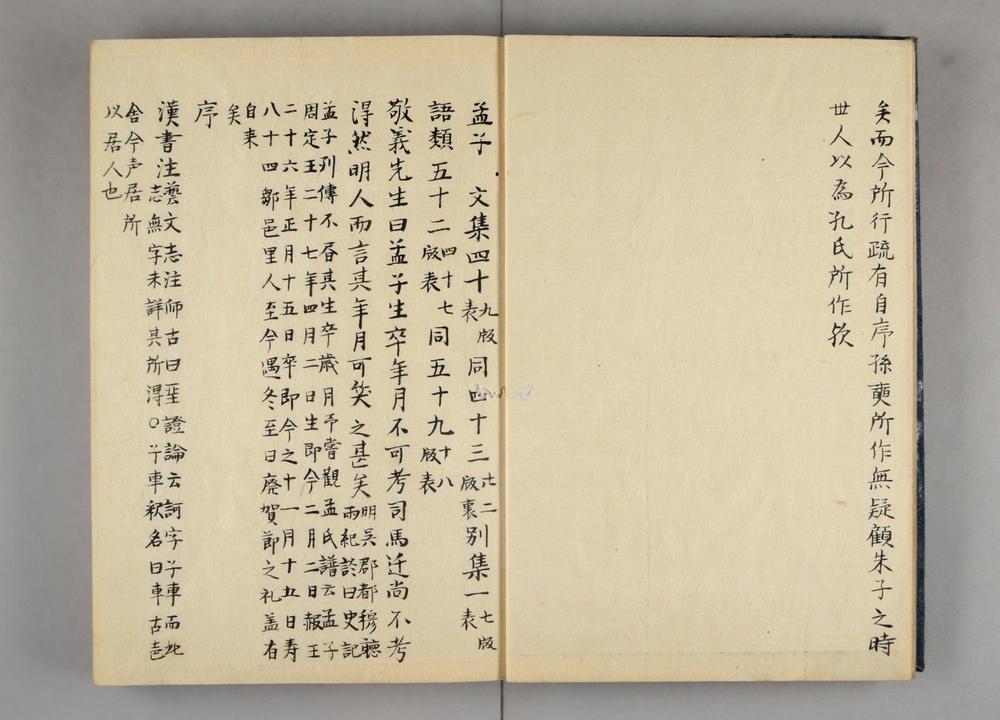 矣而今所行疏有自序孫奭所作無疑顧朱子之時
世人以為孔氏所作欤
孟子 文集四十九版表同四十三廿二版裏別集一七版表
語類五十二四十七版表同五十九十八版表
敬義先生曰孟子生卒年月不可考司馬迁尚不考
得然明人而言其年月可笑之甚矣明吳郡都穆聽雨紀談曰史記
孟子列傳不屑其生卒歲月予嘗觀孟氏譜云孟子
周定王二十七年四月二日生即今二月二日赧王
二十六年正月十五日卒即今之十一月十五日寿
八十四鄒邑里人至今遇冬至日廢賀節之礼盖有
自来
矣
序
漢書注藝文志注師古曰聖證論云訶字子車而此
志無字未詳其所得○子車釈名曰車古声
舍今声居所
以居人也